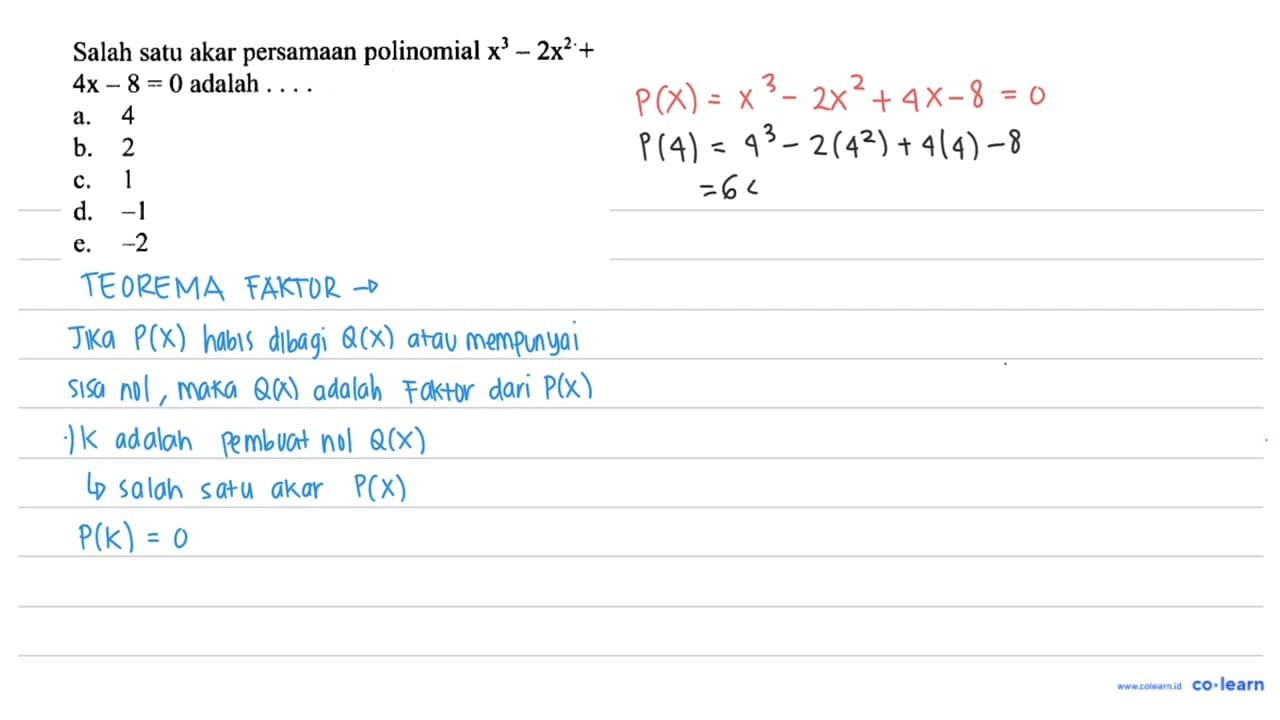 Salah satu akar persamaan polinomial x³ – 2x² +
4x – 8 = 0 adalah . . . .
a. 4
b. 2
c. 1
d. –1
e. –2
P(X) = x³ - 2x² + 4x - 8 = 0
P(4) = 4³ - 2(4²) + 4(4) - 8
= 6
TEOREMA FAKTOR →
Jika P(X) habis dibagi Q(X) atau mempunyai
sisa nol, maka Q(X) adalah Faktor dari P(X)
·) K adalah pembuat nol Q(X)
↳ salah satu akar P(X)
P(K) = 0
www.colearn.id co·learn